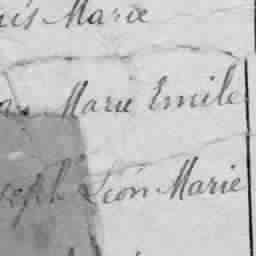 Marie
Marie Emile
Joseph Léon Marie